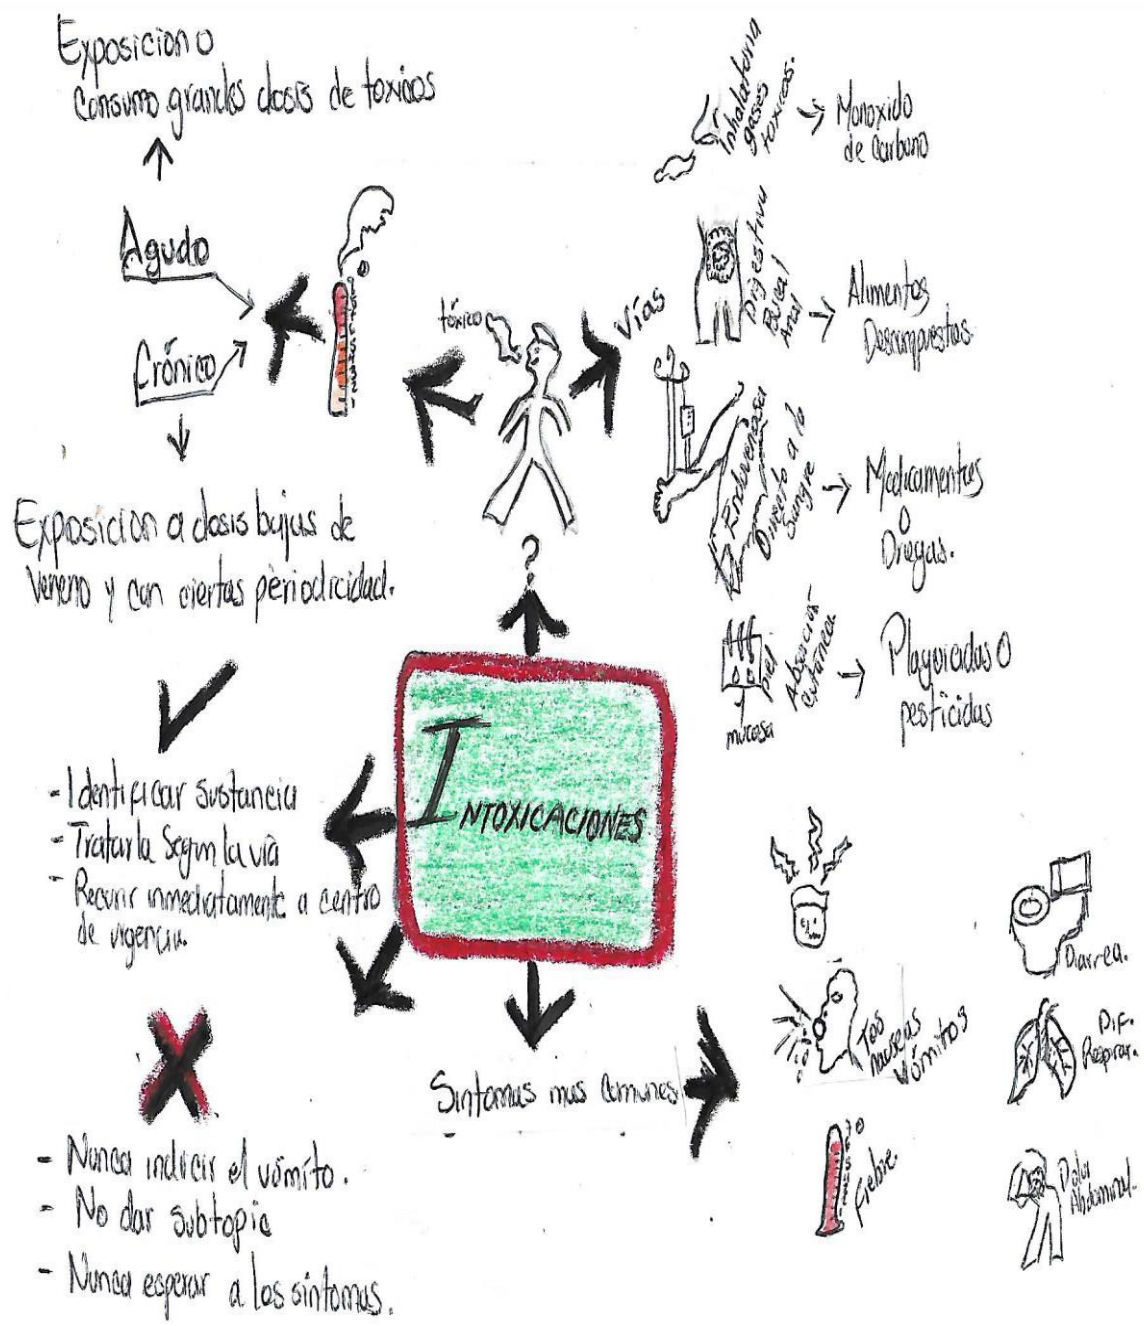 Exposicion o
Consumo grandes dosis de toxicos
Agudo
Crónico
Exposicion a dosis bajas de
Veneno y con ciertas periodicidad.
tóxico
Vías
Inhalatoria
gases
toxicos.
Monoxido
de Carbono
Digestiva
Bucal
Anal
Alimentos
Descompuestos.
Endovenosa
Directo a la
Sangre
Medicamentos
O
Drogas.
piel
mucosa
Absorción
cutánea
Plaguicidas O
pesticidas
?
INTOXICACIONES
- Identificar sustancia
- Tratarla Segun la via
- Recurrir inmediatamente a centro
de urgencia.
- Nunca inducir el vómito.
- No dar subtopic
- Nunca esperar a los síntomas.
Sintomas mas Comunes
Tos
nauseas
Vómitos
Fiebre.
Diarrea.
Dif.
Respirar.
Dolor
Abdominal.